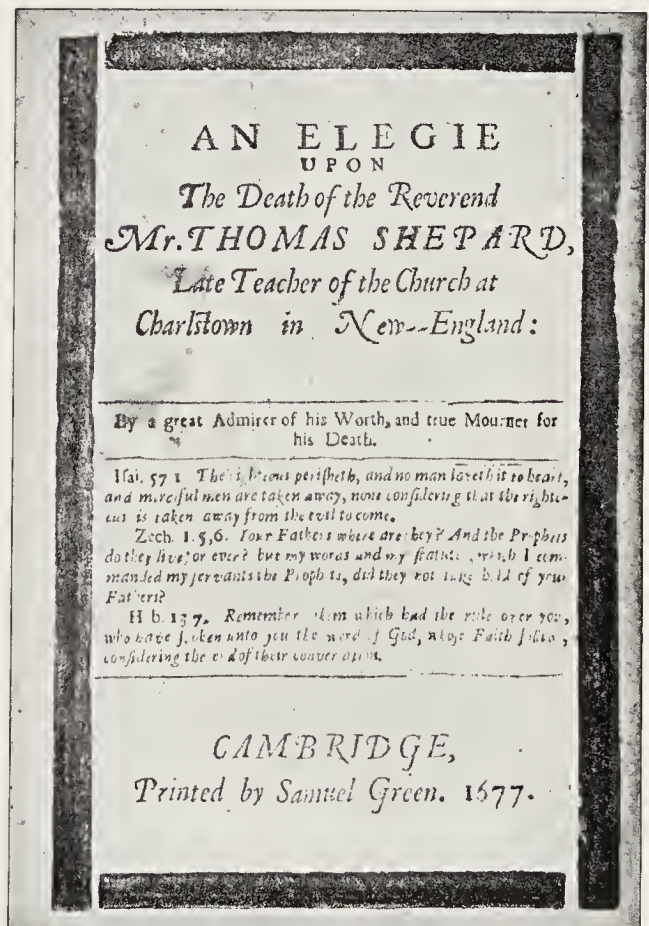 AN ELEGIE
UPON
The Death of the Reverend
Mr. THOMAS SHEPARD,
Late Teacher of the Church at
Charlſtown in New--England:
By a great Admirer of his Worth, and true Mourner for
his Death.
Iſai. 57 1 The periſheth, and no man layeth it to heart,
and merciful men are taken away, none conſidering that the righte-
ous is taken away from the evil to come.
Zech. 1. 5,6. Your Fathers where are they? And the Prophets
do they live for ever? but my words and my I com-
manded my ſervants the did they not take hold of your
Fathers?
H b. 13 7. Remember them which had the rule over you,
who have unto you the word of God, whoſe Faith
conſidering the of their
CAMBRIDGE,
Printed by Samuel Green. 1677.